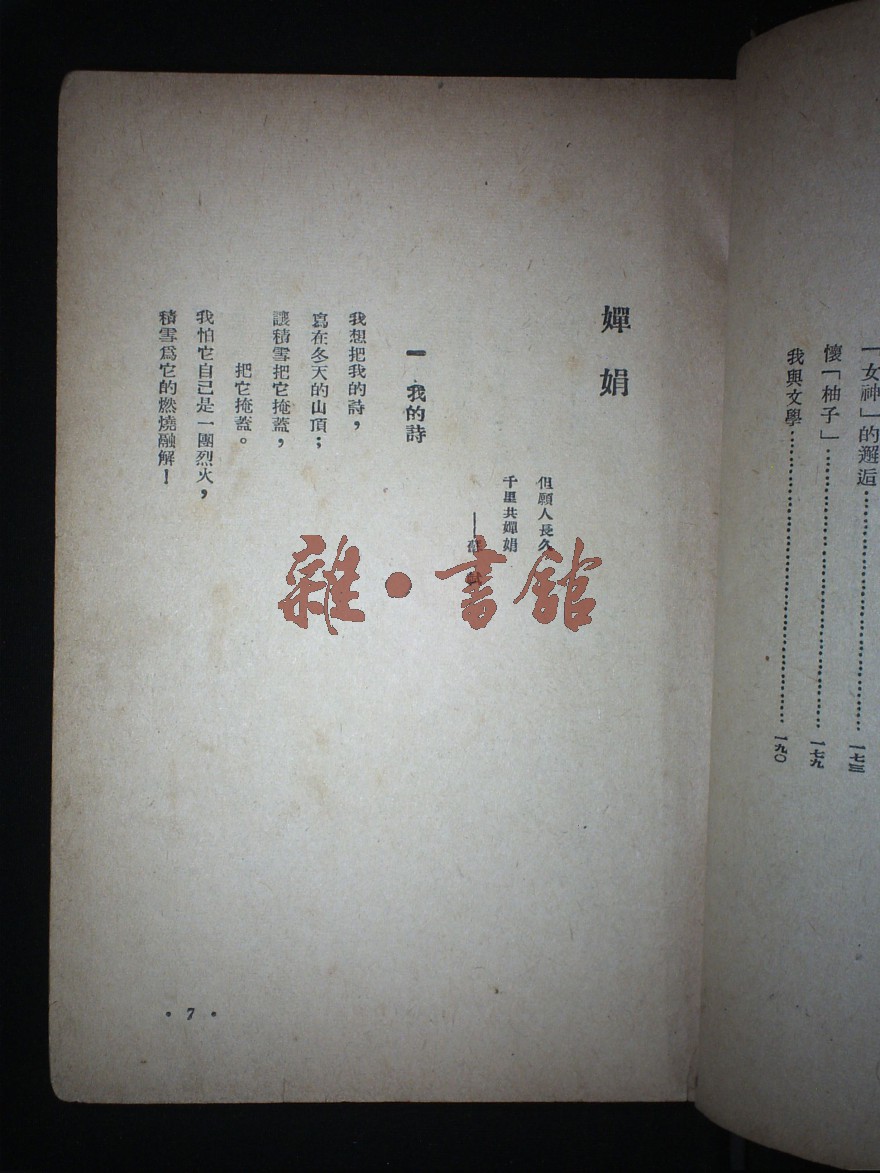 「女神」的邂逅⋯⋯⋯⋯⋯⋯⋯⋯⋯⋯一七三
懷「柚子」⋯⋯⋯⋯⋯⋯⋯⋯⋯⋯一七九
我與文學⋯⋯⋯⋯⋯⋯⋯⋯⋯⋯一九〇
嬋娟
但願人長久
千里共嬋娟
——蘇軾
一 我的詩
我想把我的詩，
寫在冬天的山頂；
讓積雪把它掩蓋，
把它掩蓋。
我怕它自己是一團烈火，
積雪爲它的燃燒融解！
• 7 •
雜•書館